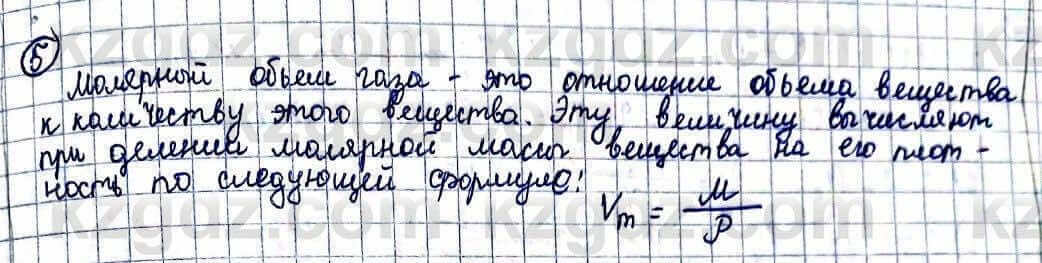 5
Молярный объем газа - это отношение объема вещества
к количеству этого вещества. Эту величину вычисляют
при делении молярной массы вещества на его плот-
ность по следующей формуле:
Vm = M/ρ
kzgdz.com kzgdz.com kz
kzgdz.com kzgdz.com kz